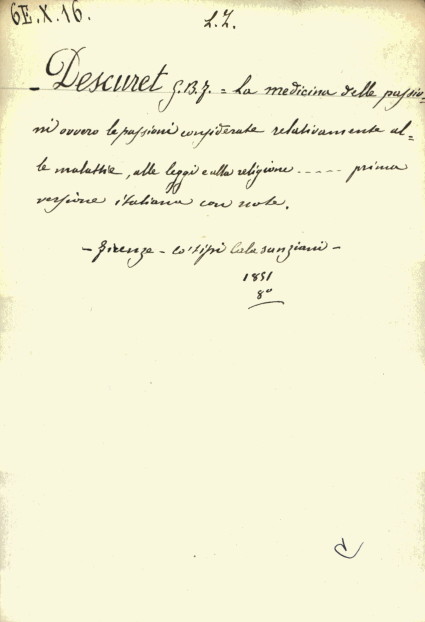 6E.X.16.
L.Z.
- Descuret G.B.F. = La medicina delle passio=
ni ovvero le passioni considerate relativamente al=
le malattie, alle leggi e alla religione ..... prima
versione italiana con note.
- Firenze - co' tipi Calasanziani -
1851
8°